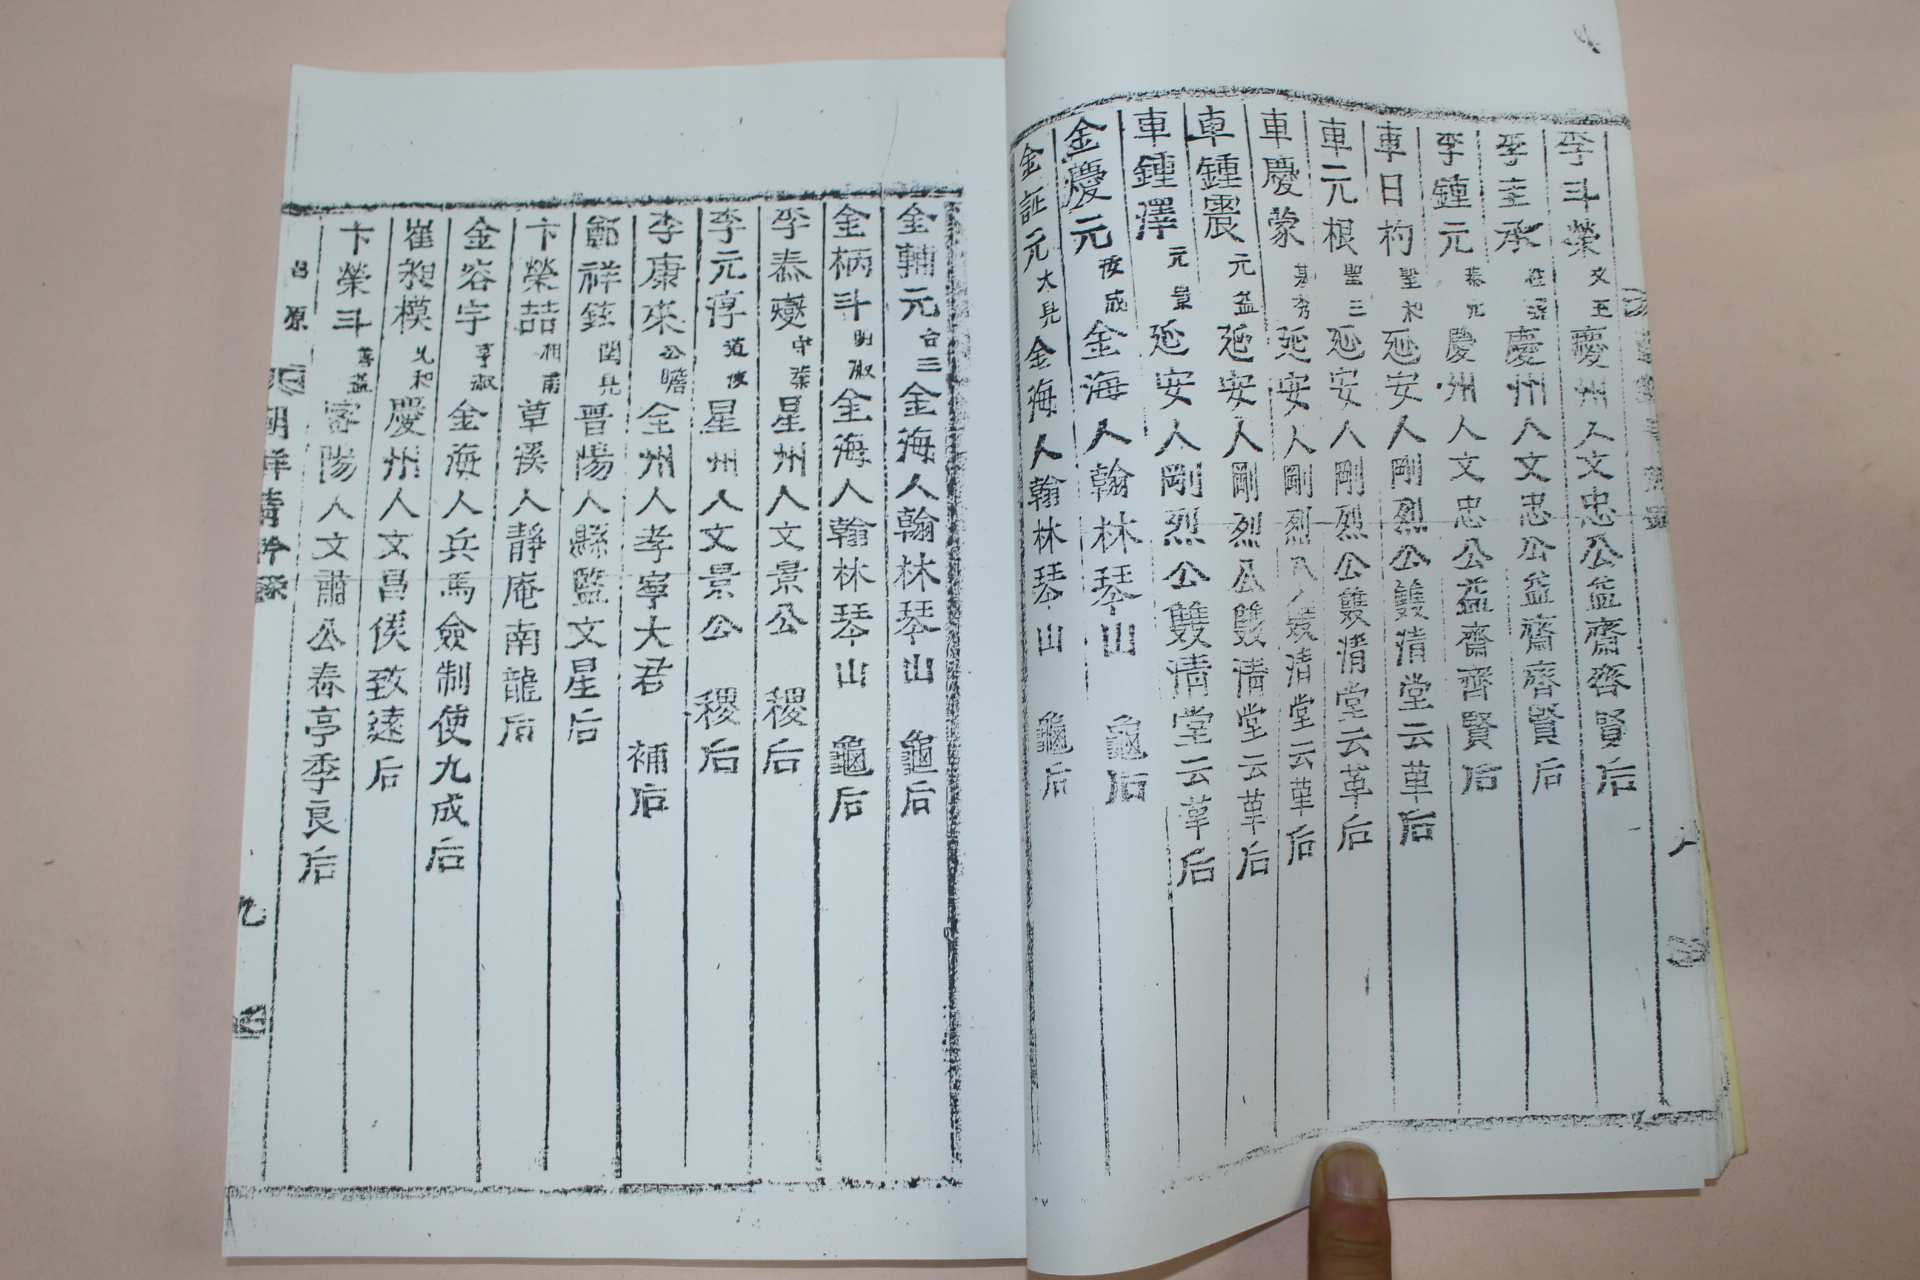 李斗榮 文玉 慶州人文忠公益齋齊賢后
李圭承 慶州人文忠公益齋齊賢后
李鍾元 泰允 慶州人文忠公益齋齊賢后
車日杓 聖和 延安人剛烈公雙清堂云革后
車元根 聖三 延安人剛烈公雙清堂云革后
車慶蒙 基秀 延安人剛烈公雙清堂云革后
車鍾震 元益 延安人剛烈公雙清堂云革后
車鍾澤 元景 延安人剛烈公雙清堂云革后
金慶元 成 金海人翰林琴山 龜后
金証元 大見 金海人翰林琴山 龜后
金輔元 台三 金海人翰林琴山 龜后
金柄斗 明淑 金海人翰林琴山 龜后
李泰燮 中 星州人文景公 稷后
李元淳 道俊 星州人文景公 稷后
李康來 公瞻 全州人孝寧大君 補后
鄭祥鉉 晋陽人縣監文星后
卞榮喆 相甫 草溪人靜庵南龍后
金容宇 亨淑 金海人兵馬僉制使九成后
崔昶模 允和 慶州人文昌侯致遠后
卞榮斗 善益 密陽人文肅公春亭季良后
昌原
九